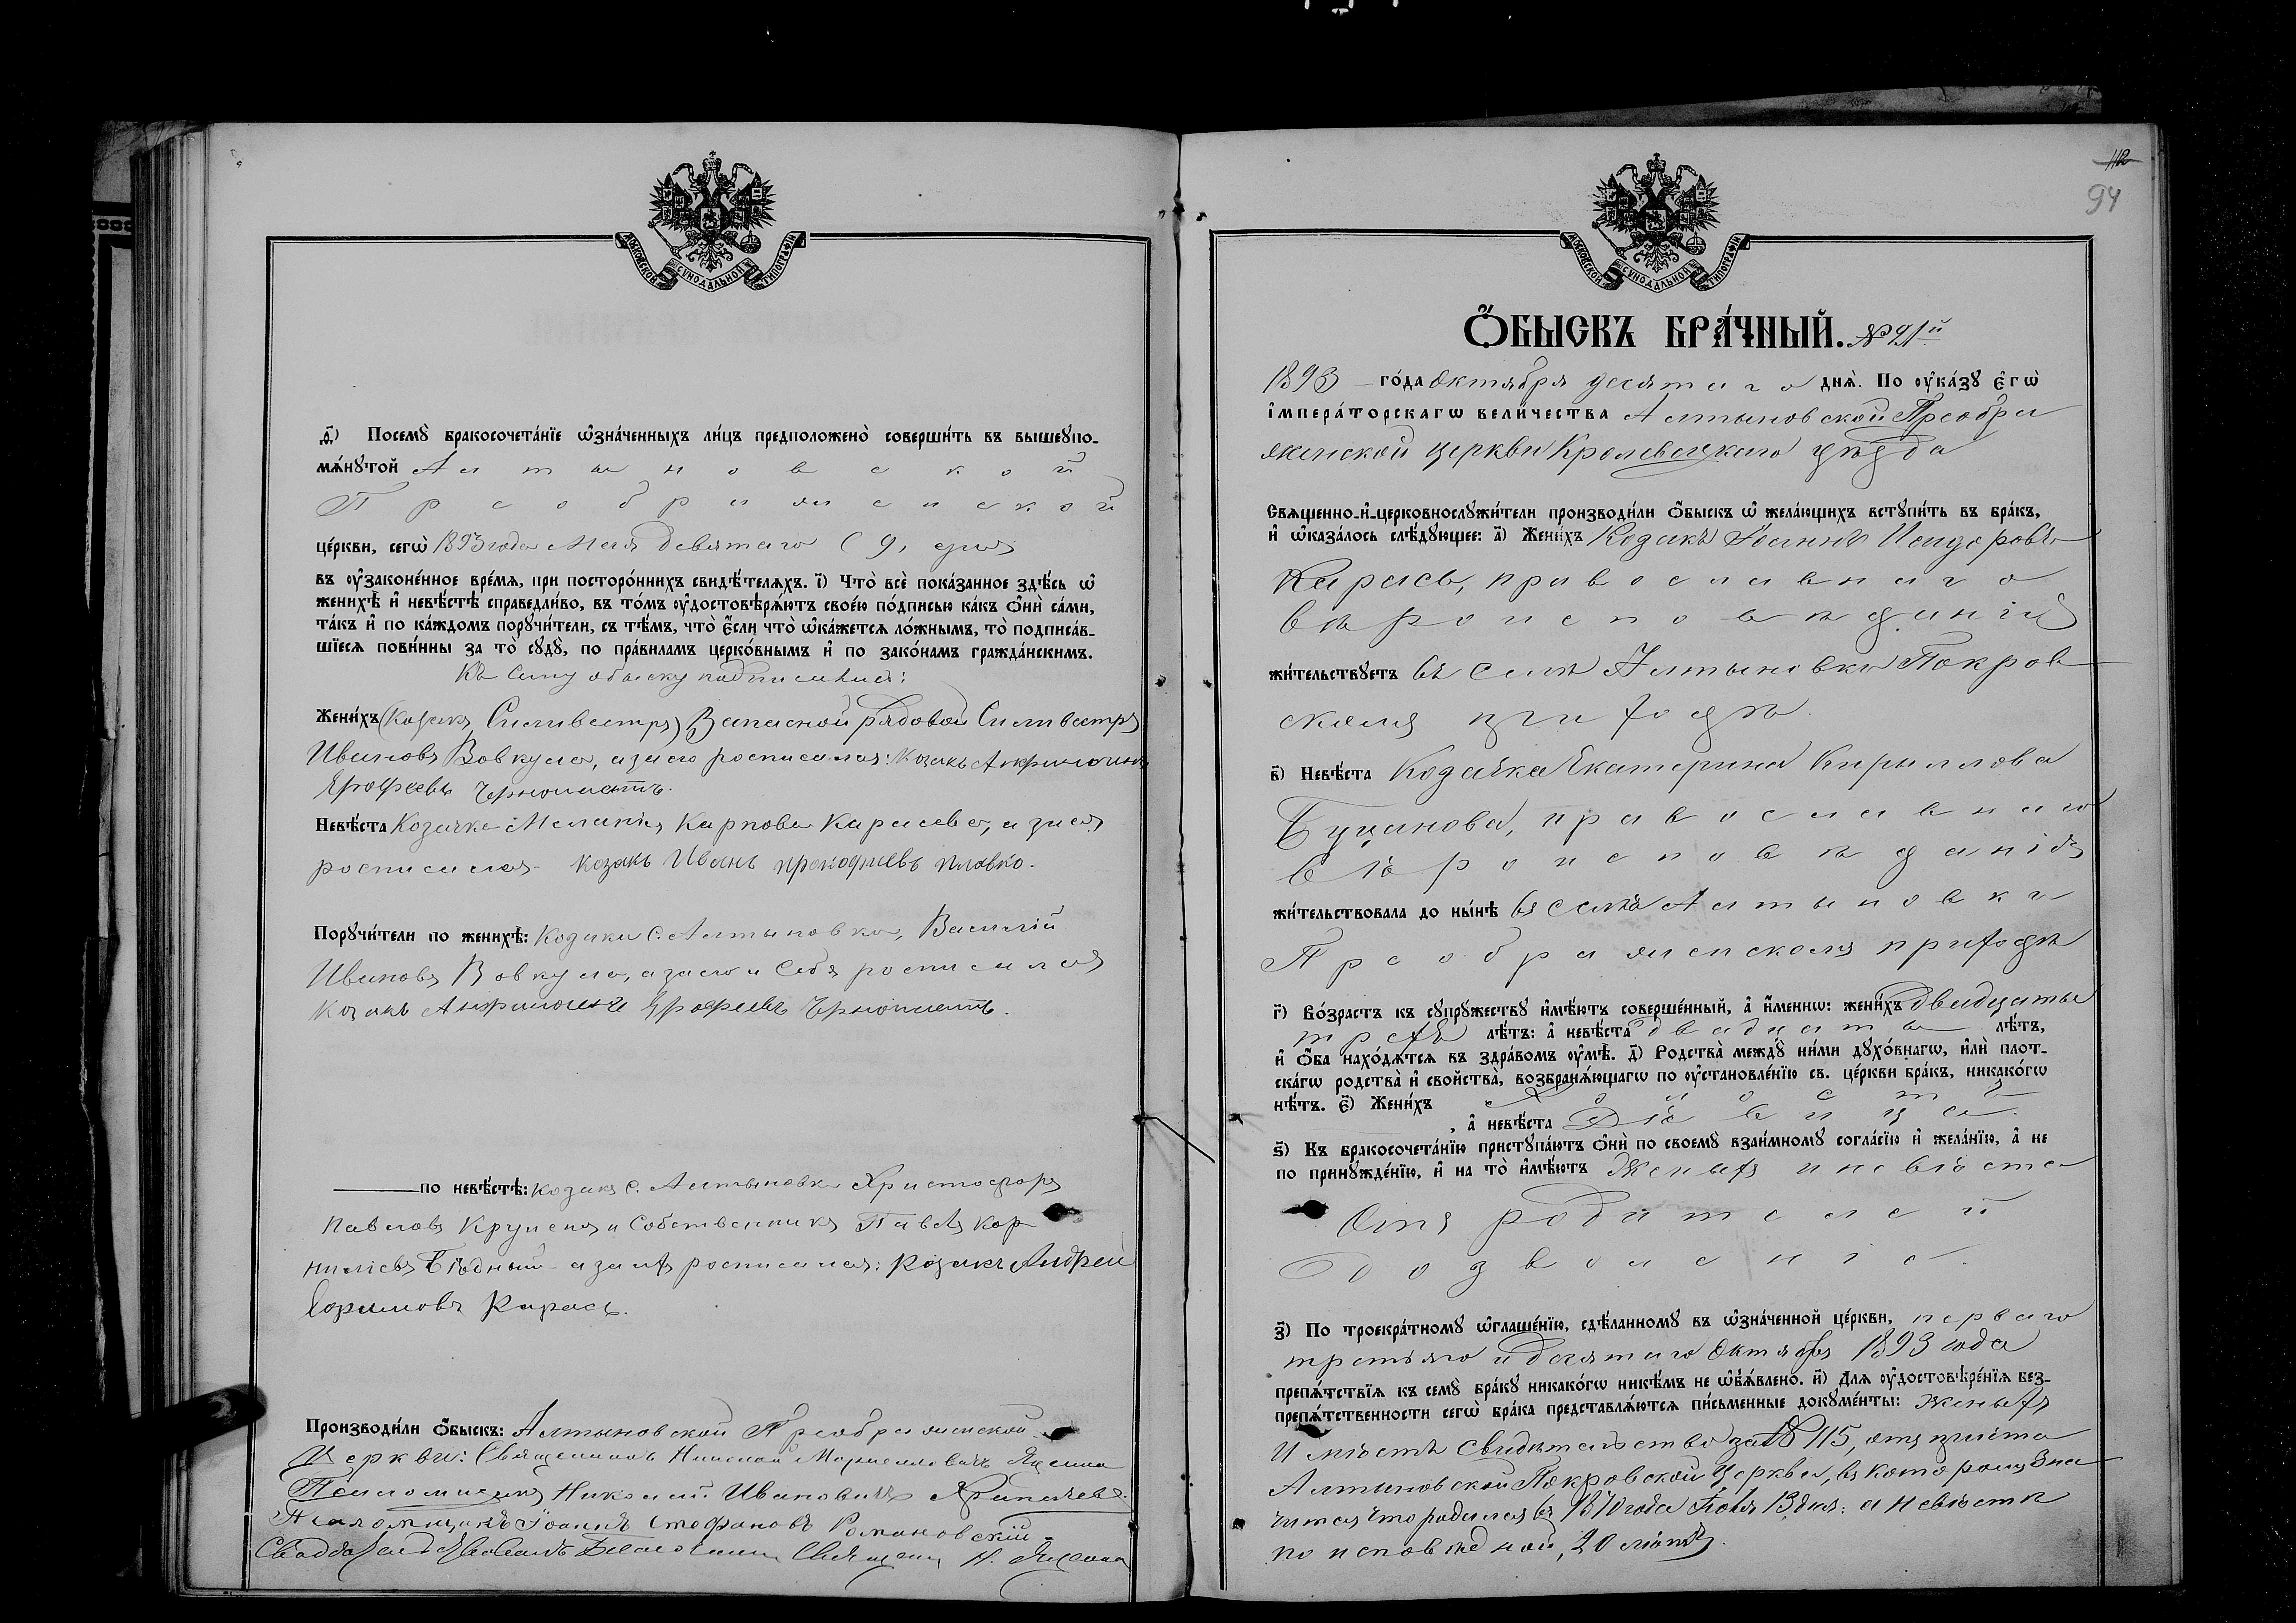 МОСКОВСКОЙ СѴНОДАЛЬНОЙ ТИПОГРАФІИ
д҃) Посемꙋ̀ бракосочета́нїе ѡ҆зна́ченныхъ ли́цъ предположено̀ соверши́ть въ вышеꙋпо-
мѧ́нꙋтой Алтыновской
Преображенской
це́ркви, сегѡ̀ 1893 года Мая девятаго (9, дня
въ ᲂу҆законе́нное вре́мѧ, при посторо́ннихъ свидѣ́телѧхъ. і҃) Что̀ всѐ пока́занное здѣ́сь ѡ҆
женихѣ̀ и҆ невѣ́стѣ справедли́во, въ то́мъ ᲂу҆достовѣрѧ́ютъ свое́ю по́дписью ка́къ ѻ҆нѝ са́ми,
та́къ и҆ по ка́ждомъ порꙋчи́тели, съ тѣ́мъ, что̀ є҆́сли что̀ ѡ҆ка́жетсѧ ло́жнымъ, то̀ подписа́в-
шїесѧ пови́нны за то̀ сꙋдꙋ̀, по пра́виламъ церко́внымъ и҆ по зако́намъ гражда́нскимъ.
Къ сему обыску подписались:
Жени́хъ (Козакъ Сильвестръ) Запасной рядовой Сильвестръ
Ивановъ Вовкула, а за его росписался: Козакъ
Ерофеевъ
Невѣ́ста Козачка Меланія Карпова Карасева, а за ея
росписался козакъ Иванъ прокофиевъ пловко.
Порꙋчи́тели по женихѣ̀: Козаки С. Алтыновки, Василій
Ивановъ Вовкула, а за его и себя росписался
Козакъ Ерофеевъ
по невѣ́стѣ: Козакъ с. Алтыновки Христофоръ
Павловъ и Собственникъ Павелъ Кор
нилиевъ Бѣдный а за ихъ росписался: Козакъ Андрей
Ефимовъ Карась.
Производи́ли ѻ҆́быскъ: Алтыновской Преображенской
Церкви: Священникъ Николай Ященко
Псаломщикъ Николай Ивановичъ
Псаломщикъ Іоаннъ Стефановъ Романовскій
Священникъ Н. Ященко
112
94
МОСКОВСКОЙ СѴНОДАЛЬНОЙ ТИПОГРАФІИ
Ѻ҆БЫСКЪ БРА́ЧНЫЙ. № 21й
1893 го́да Октября десятаго днѧ̀. По ᲂу҆ка́зꙋ є҆гѡ̀
і҆мпера́торскагѡ вели́чества Алтыновской Преобра
женской церкви Кролевецкаго уѣзда
Свѧщенно-и҆-церковнослꙋжи́тели производи́ли ѻ҆́быскъ ѡ҆ жела́ющихъ встꙋпи́ть въ бра́къ,
и҆ ѡ҆каза́лось слѣ́дꙋющее: а҃) Жени́хъ Козакъ Іоаннъ Исидоровъ
Карась, православнаго
вѣроисповѣданія
жи́тельствꙋетъ въ селѣ Алтыновки Покров
скомъ приходѣ.
в҃) Невѣ́ста Козачка Екатерина Кириллова
Буцанова, православнаго
вѣроисповѣданія
жи́тельствовала до ны́нѣ въ селѣ Алтыновки
Преображенскомъ приходѣ
г҃) Во́зрастъ къ сꙋпрꙋ́жествꙋ и҆мѣ́ютъ соверше́нный, а҆ и҆́меннѡ: жени́хъ двадцаты
трехъ лѣ́тъ: а҆ невѣ́ста двадцаты лѣ́тъ,
и҆ ѻ҆́ба нахо́дѧтсѧ въ здра́вомъ ᲂу҆мѣ̀. д҃) Родства̀ междꙋ̀ ни́ми дꙋхо́внагѡ, и҆лѝ плот-
ска́гѡ родства̀ и҆ сво́йства, возбранѧ́ющагѡ по ᲂу҆становле́нїю св. це́ркви бра́къ, никако́гѡ
нѣ́тъ. є҃) Жени́хъ холостъ
, а҆ невѣ́ста Дѣвица.
ѕ҃) Къ бракосочета́нїю пристꙋпа́ютъ ѻ҆нѝ по своемꙋ̀ взаи́мномꙋ согла́сїю и҆ жела́нїю, а҆ не
по принꙋжде́нїю, и҆ на то̀ и҆мѣ́ютъ Женихъ и невѣста
Отъ родителей
дозволеніе.
з҃) По троекра́тномꙋ ѡ҆глаше́нїю, сдѣ́ланномꙋ въ ѡ҆зна́ченной це́ркви, перваго
третьяго и десятаго Октября 1893 года
препѧ́тствїѧ къ семꙋ̀ бра́кꙋ никако́гѡ никѣ́мъ не ѡ҆б̾ѧ́влено. и҃) Длѧ ᲂу҆достовѣре́нїѧ без-
препѧ́тственности сегѡ̀ бра́ка представлѧ́ютсѧ пи́сьменные докꙋме́нты: женихъ
свидѣтельство за № 115, отъ причта
Алтыновской Покровской Церквы, въ которомъ зна
чится что родился въ 1870 года 13 дня: а невѣстѣ
по исповѣдной, 20 лѣтъ.